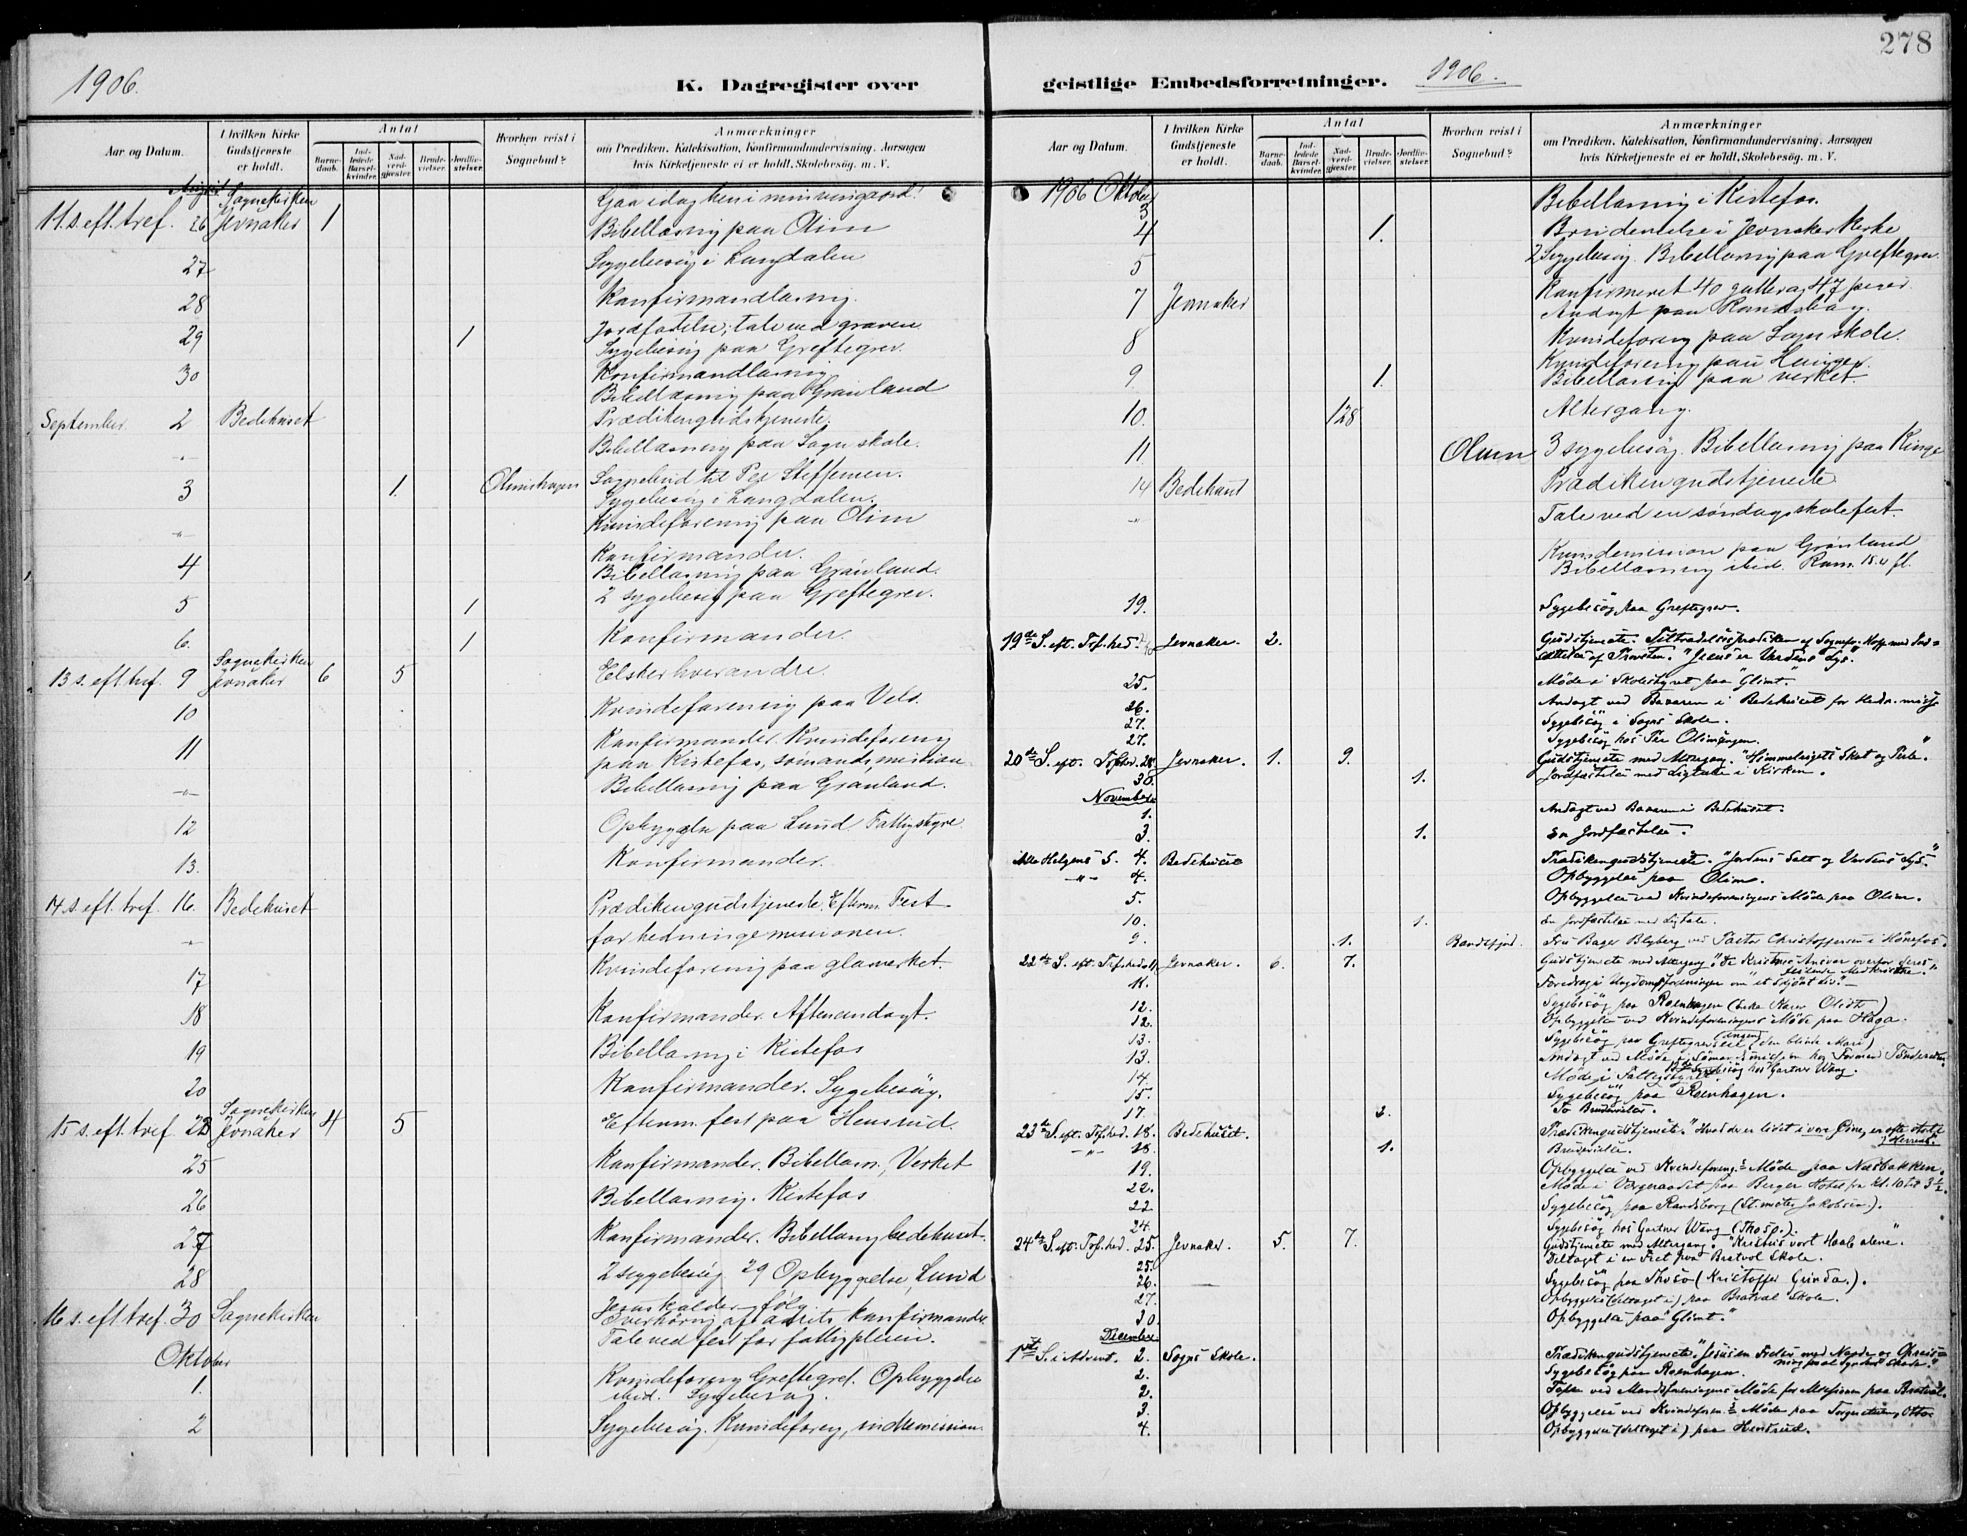 278
1906.
K. Dagregister over
geistlige Embedsforretninger. 1906.
Aar og Datum.
I hvilken Kirke Gudstjeneste er holdt.
Antal
Barnedaab.
Indledede Barselkvinder.
Nadverdgjester
Brudevielser.
Jordfæstelser.
Hvorhen reist i Sognebud?
Anmærkninger
om Prædiken, Katekisation, Konfirmandundervisning, Aarsagen
hvis Kirketjeneste ei er holdt, Skolebesøg. m. V.
August Sognekirken
11. s. eft. tref. 26 Jevnaker 1 Gaa idag hen i min vingaard!
Bibellæsning paa Olim
27 Sygebesøg i Langdalen
28 Konfirmandlæsning.
29 1 Jordfæstelse, tale ved graven
Sygebesøg paa Greftegrev.
30 Konfirmandlæsning
Bibellæsning paa Grønland
September 2 Bedehuset Prædikengudstjeneste.
-"- Bibellæsning paa Sogn skole.
3 1. Olimshagen Sognebud til Per Steffensen.
Sygebesøg i Langdalen.
-"- Kvindeforening paa Olim
4 Konfirmander.
Bibellæsning paa Grønland.
5 1 2 sygebesøg paa Greftegrev.
6. 1 Konfirmander.
Sognekirken
13 s. eft. tref. 9 Jevnaker 6 5 Elsker hverandre.
10 Kvindeforening paa Velo.
11 Konfirmander. Kvindeforening
paa Kistefos, sømandsmission
-"- Bibellæsning paa Grønland.
12 Opbyggelse paa Lund Fattigstyre
13. Konfirmander.
14 s. eft. tref. 16. Bedehuset Prædikengudstjeneste. Efterm. Fest
-"- for hedningemissionen.
17 Kvindeforening paa glasverket.
18 Konfirmander. Aftenandagt.
19 Bibellæsning i Kistefos
20 Konfirmander. Sygebesøg.
Sognekirken
15 s. eft. tref. 23 Jevnaker 4 5 Efterm. fest paa Hensrud.
25 Konfirmander. Bibellæsn., Verket
26 Bibellæsning. Kistefos
27 Konfirmander. Bibellæsning bedehuset.
28 2 sygebesøg. 29 Opbyggelse, Lund
16 s. eft tref. 30 Sognekirken Jesus kalder, følg
Overhøring af aarets konfirmander
Tale ved fest for fattigpleien.
Oktober
1. Kvindeforening Greftegrev. Opbyggelse
ibid. Sygebesøg.
2 Sygebesøg. Kvindeforening, indremission
Aar og Datum.
I hvilken Kirke Gudstjeneste er holdt.
Antal
Barnedaab.
Indledede Barselkvinder.
Nadverdgjester
Brudevielser.
Jordfæstelser.
Hvorhen reist i Sognebud?
Anmærkninger
om Prædiken, Katekisation, Konfirmandundervisning, Aarsagen
hvis Kirketjeneste ei er holdt, Skolebesøg. m. V.
1906 Oktober
3 Bibellæsning i Kistefos.
4 1. Brudevielse i Jevnaker Kirke
5 2 Sygebesøg. Bibellæsning paa Greftegrev.
7 Jevnaker Konfirmeret 40 gutter og 47 piger
Andagt paa Randsborg.
8 Kvindeforening paa Sogn skole.
9 1. Kvindeforening paa
Bibellæsning paa verket.
10. 128 Altergang.
11 Olum 3 sygebesøg. Bibellæsning paa Kinge
14 Bedehuset Prædikengudstjeneste
-"- Tale ved en søndagsskolefest.
Kvindemission paa Grønland
Bibellæsning ibid. Rom. 15.
19. Sygebesøg paa Greftegrev.
19de S. eft. Tref.hed. Jevnaker. 2. Gudstjeneste. Tiltrædelsesprædiken af Sognepr. Hoff med Ind=
sættelse af Provsten. "Jesus er Verdens Lys."
25. Møde i Skolestyret paa Glimt.
26. Andagt ved Bazaren i Bedehuset for Hedn. miss.
27. Sygebesøg i Sogns Skole.
27. Sygebesøg hos Per Olimengen.
20de S. eft. Tref.hed. 28. Jevnaker. 1. 9. Gudstjeneste med Altergang. "Himmelrigets Skat og Perle."
30. 1. Jordfæstelse med Ligtale i Kirken.
November
1. Andagt ved Bazaren i Bedehuset.
3. 1. En Jordfæstelse.
Alle Helgens S. 4. Bedehuset Prædikengudstjeneste. "Jordens Salt og Verdens Lys."
-"- 4. Opbyggelse paa Olim.
5. Opbyggelse ved Kvindeforeningens Møde paa Olim.
10. 1. En Jordfæstelse med Ligtale.
9. 1. Randsfjord. Fru Bager Blyberg ved Pastor Christoffersen i Hønefos.
22de S. eft. Tref.hed. 11 Jevnaker. 6. 7. Gudstjeneste med Altergang. "De Kristnes Ansvar overfor deres
feilende Medkristne."
11. Foredrag i Ungdomsforeningen om "et skjønt Liv."
12. Sygebesøg paa Roenhagen
12. Opbyggelse ved Kvindeforeningens Møde paa Haga.
13. Sygebesøg paa Greftegrevseie (den blinde Mari)
13. Andagt ved Møde i Sømandsmissionen hos Formand
14. Møde i Fattigstyret. Sygebesøg hos Gartner Wang.
15. Sygebesøg paa Roenhagen.
17. 2. To Brudevielser.
23de S. eft. Tref.hed. 18. Bedehuset. Prædikengudstjeneste. "Hvad der er lidet i vore Øine, er ofte stort
i Herrens."
-"- 18. 1. Brudevielse.
19. Opbyggelse ved Kvindeforeng.s Møde paa Næsbakken.
22. Møde i Vergeraadet paa Berger Hotel fra kl. 10 til 3½.
22 Sygebesøg paa Randsborg (St.mester Jakobsen).
24. Sygebesøg hos Gartner Wang (Thoso).
24de S. eft. Tref.hed. 25. Jevnaker. 5. 7. Gudstjeneste med Altergang. "Kristus vort Haab alene."
25. Deltaget i en Fest paa Bratval Skole.
26. Sygebesøg paa Thoso (Kristoffer Grinda.).
27. Opbyggelse (deltaget i) paa Bratval Skole.
30. Opbyggelse paa "Glimt."
December
1ste S. i Advent. 2. Sogns Skole. Prædikengudstjeneste. "Jesus en Frelser med Naade og Opreis=
ning
2. Sygebesøg paa Roenhagen.
2. Talen ved Mandsforeningens Møde for Missionen paa Bratval.
3. Opbyggelse ved Kvindeforen.s Møde paa
4. Opbyggelse (deltaget i) paa Hensrud.